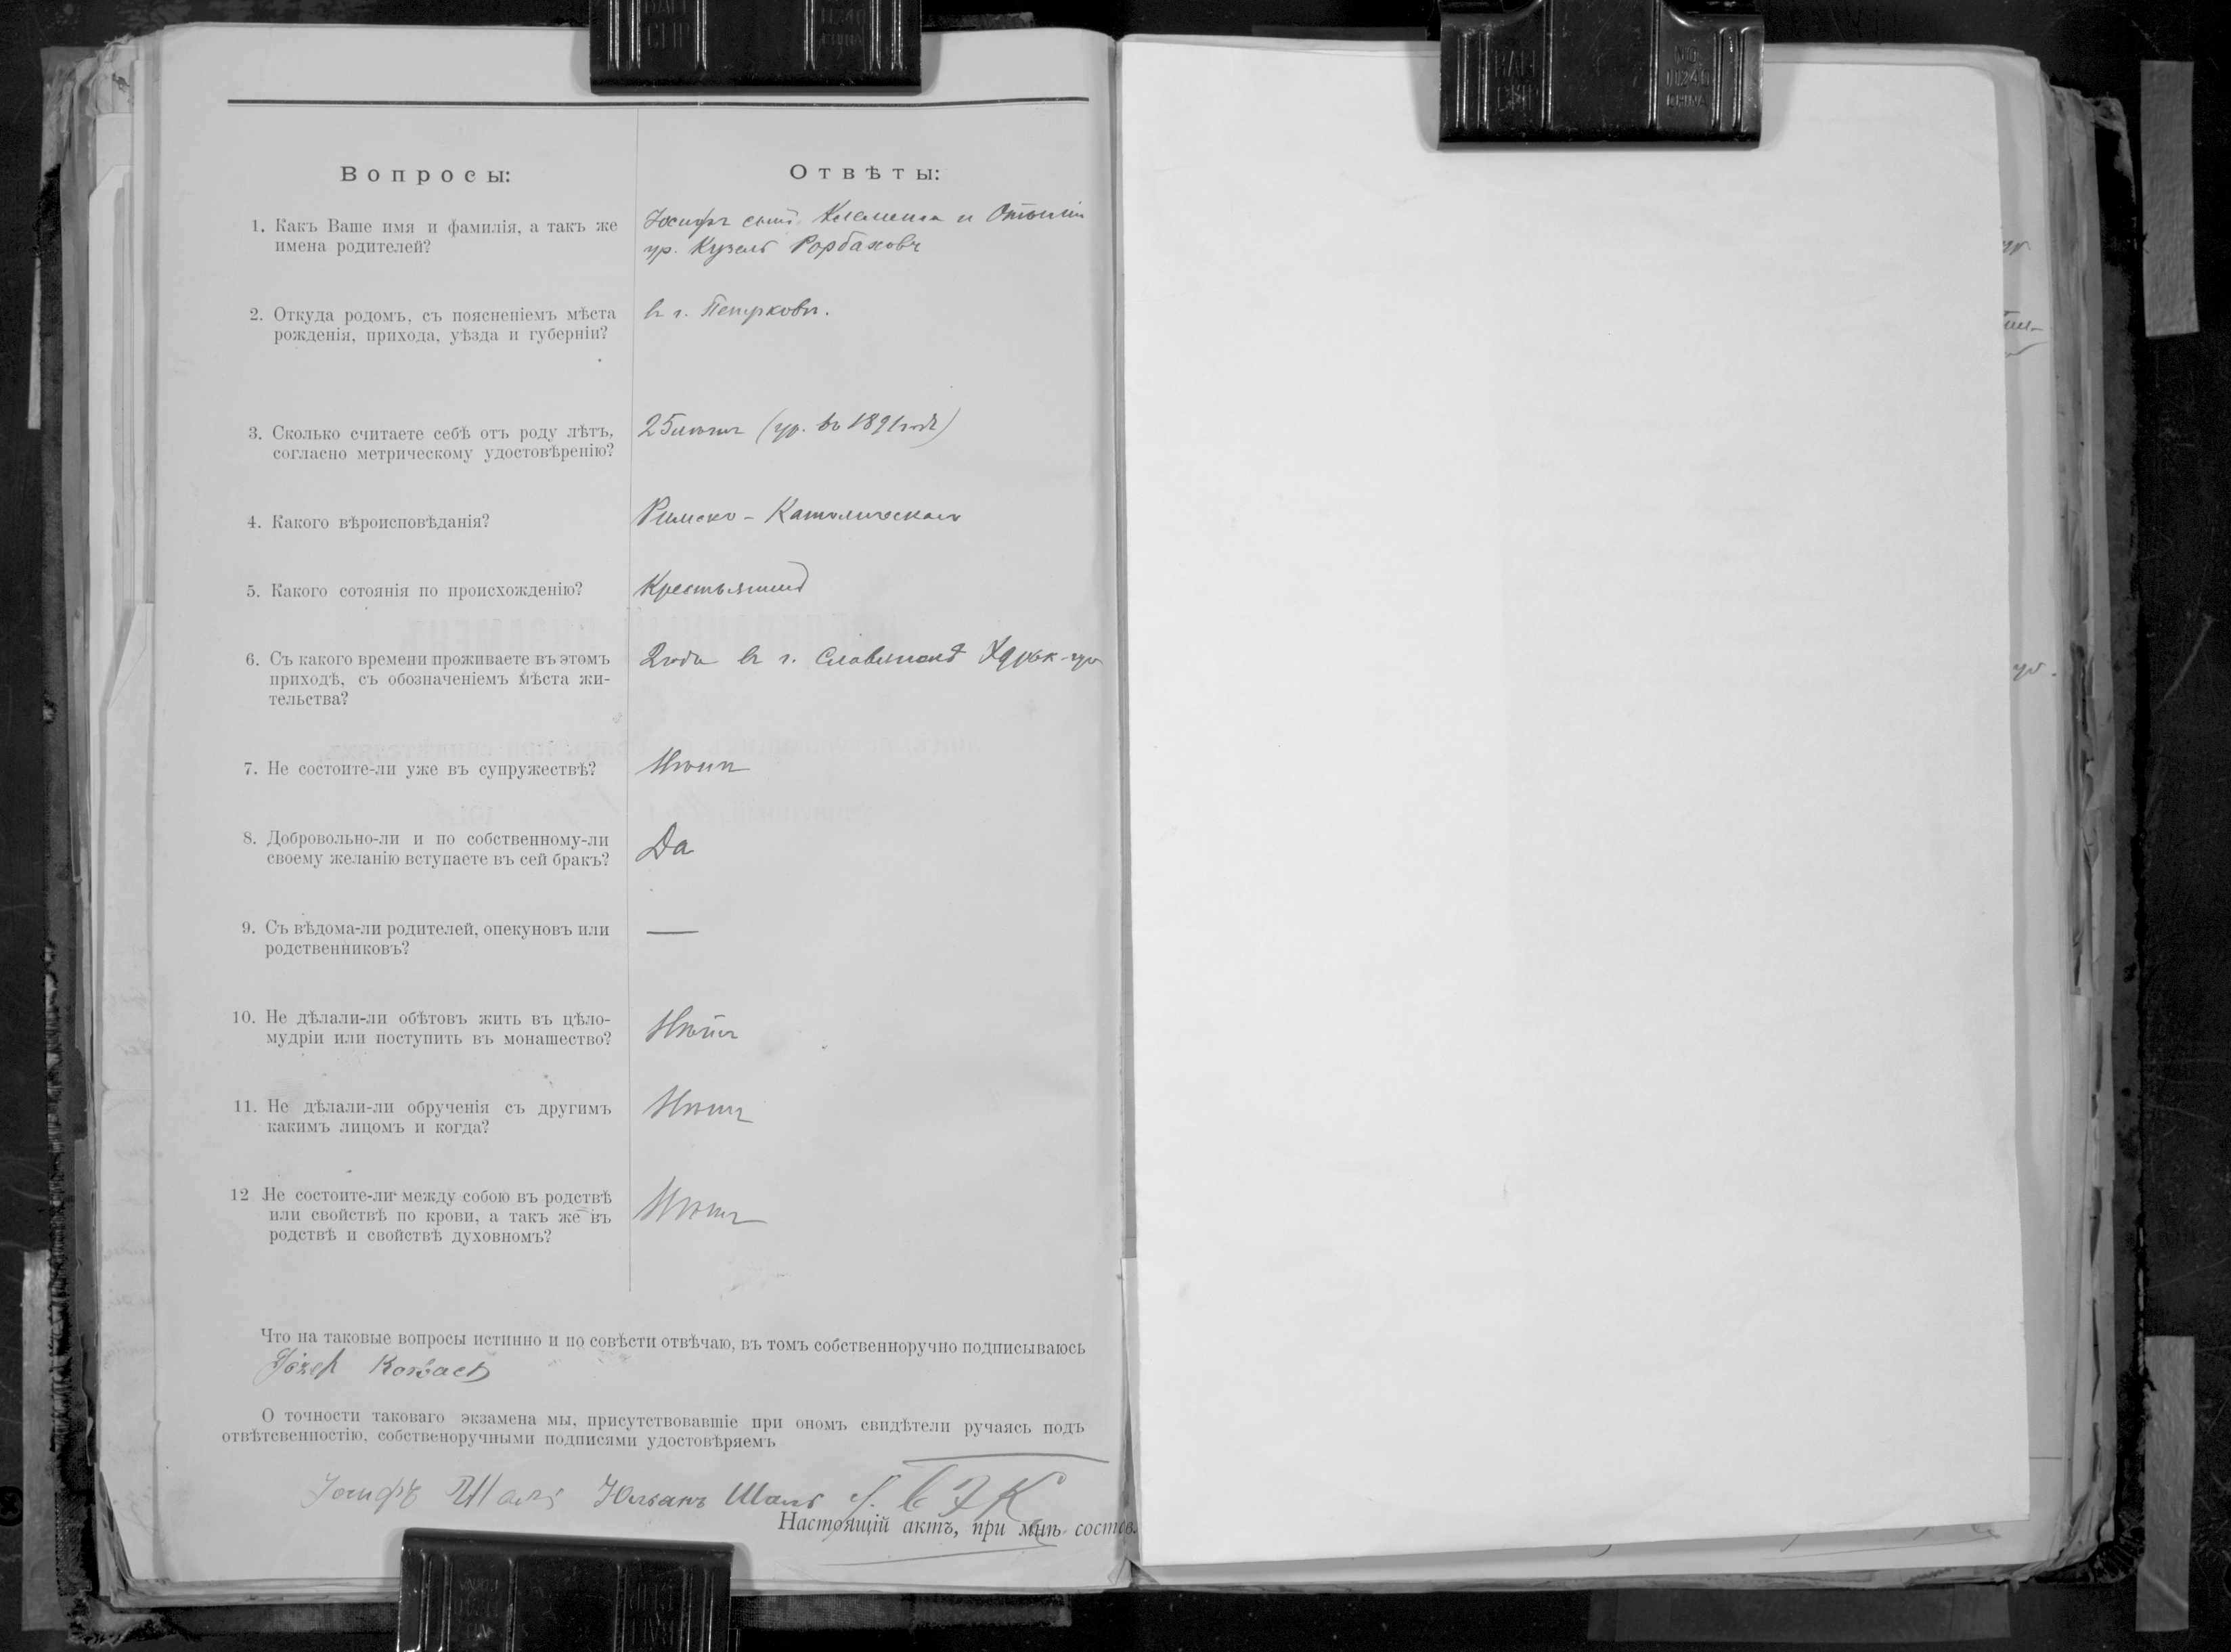 Вопросы:
Отвѣты:
1. Какъ Ваше имя и фамилія, а такъ же
имена родителей?
Іосифъ сынъ Клеменса и Отыліи
ур. Кузель Рорбаховъ
2. Откуда родомъ, съ поясненіемъ мѣста
рожденія, прихода, уѣзда и губерніи?
въ г. Петрковѣ.
3. Сколько считаете себѣ отъ роду лѣтъ,
согласно метрическому удостовѣренію?
25 лѣтъ (ур. въ 1891 годѣ)
4. Какого вѣроисповѣданія?
Римско-Католическаго
5. Какого сотоянія по происхожденію?
Крестьянинъ
6. Съ какого времени проживаете въ этомъ
приходѣ, съ обозначеніемъ мѣста жи-
тельства?
2 года въ г. Славянскѣ Харьк. гу
7. Не состоите-ли уже въ супружествѣ?
Нѣтъ
8. Добровольно-ли и по собственному-ли
своему желанію вступаете въ сей бракъ?
Да
9. Съ вѣдома-ли родителей, опекуновъ или
родственниковъ?
—
10. Не дѣлали-ли обѣтовъ жить въ цѣло-
мудріи или поступить въ монашество?
Нѣтъ
11. Не дѣлали-ли обрученія съ другимъ
какимъ лицомъ и когда?
Нѣтъ
12 Не состоите-ли между собою въ родствѣ
или свойствѣ по крови, а такъ же въ
родствѣ и свойствѣ духовномъ?
Нѣтъ
Что на таковые вопросы истинно и по совѣсти отвѣчаю, въ томъ собственноручно подписываюсь
Józef Rorbach
О точности таковаго экзамена мы, присутствовавшіе при ономъ свидѣтели ручаясь подъ
отвѣтсвенностію, собственоручными подписями удостовѣряемъ
Іосифъ Шаль Юльянъ Шаль
Настоящій актъ, при мнѣ состав.